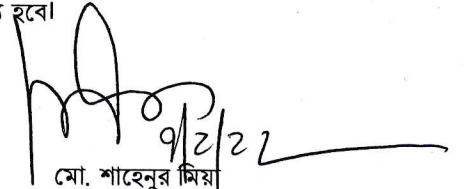 হবে।
৭/2/22
মো. শাহেনুর মিয়া